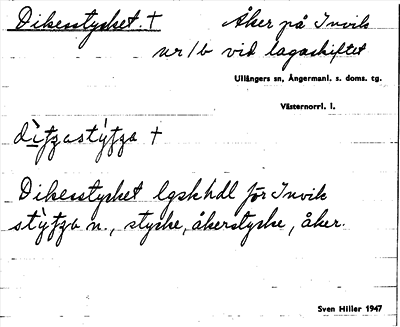 Dikesstycket. † Åker på Invik
nr 1b vid lagaskiftet
Ullångers sn, Ångermanl. s. doms. tg.
Västernorrl. l.
Dikesstycket lgskhdl för Invik
n., stycke, åkerstycke, åker.
Sven Hiller 1947